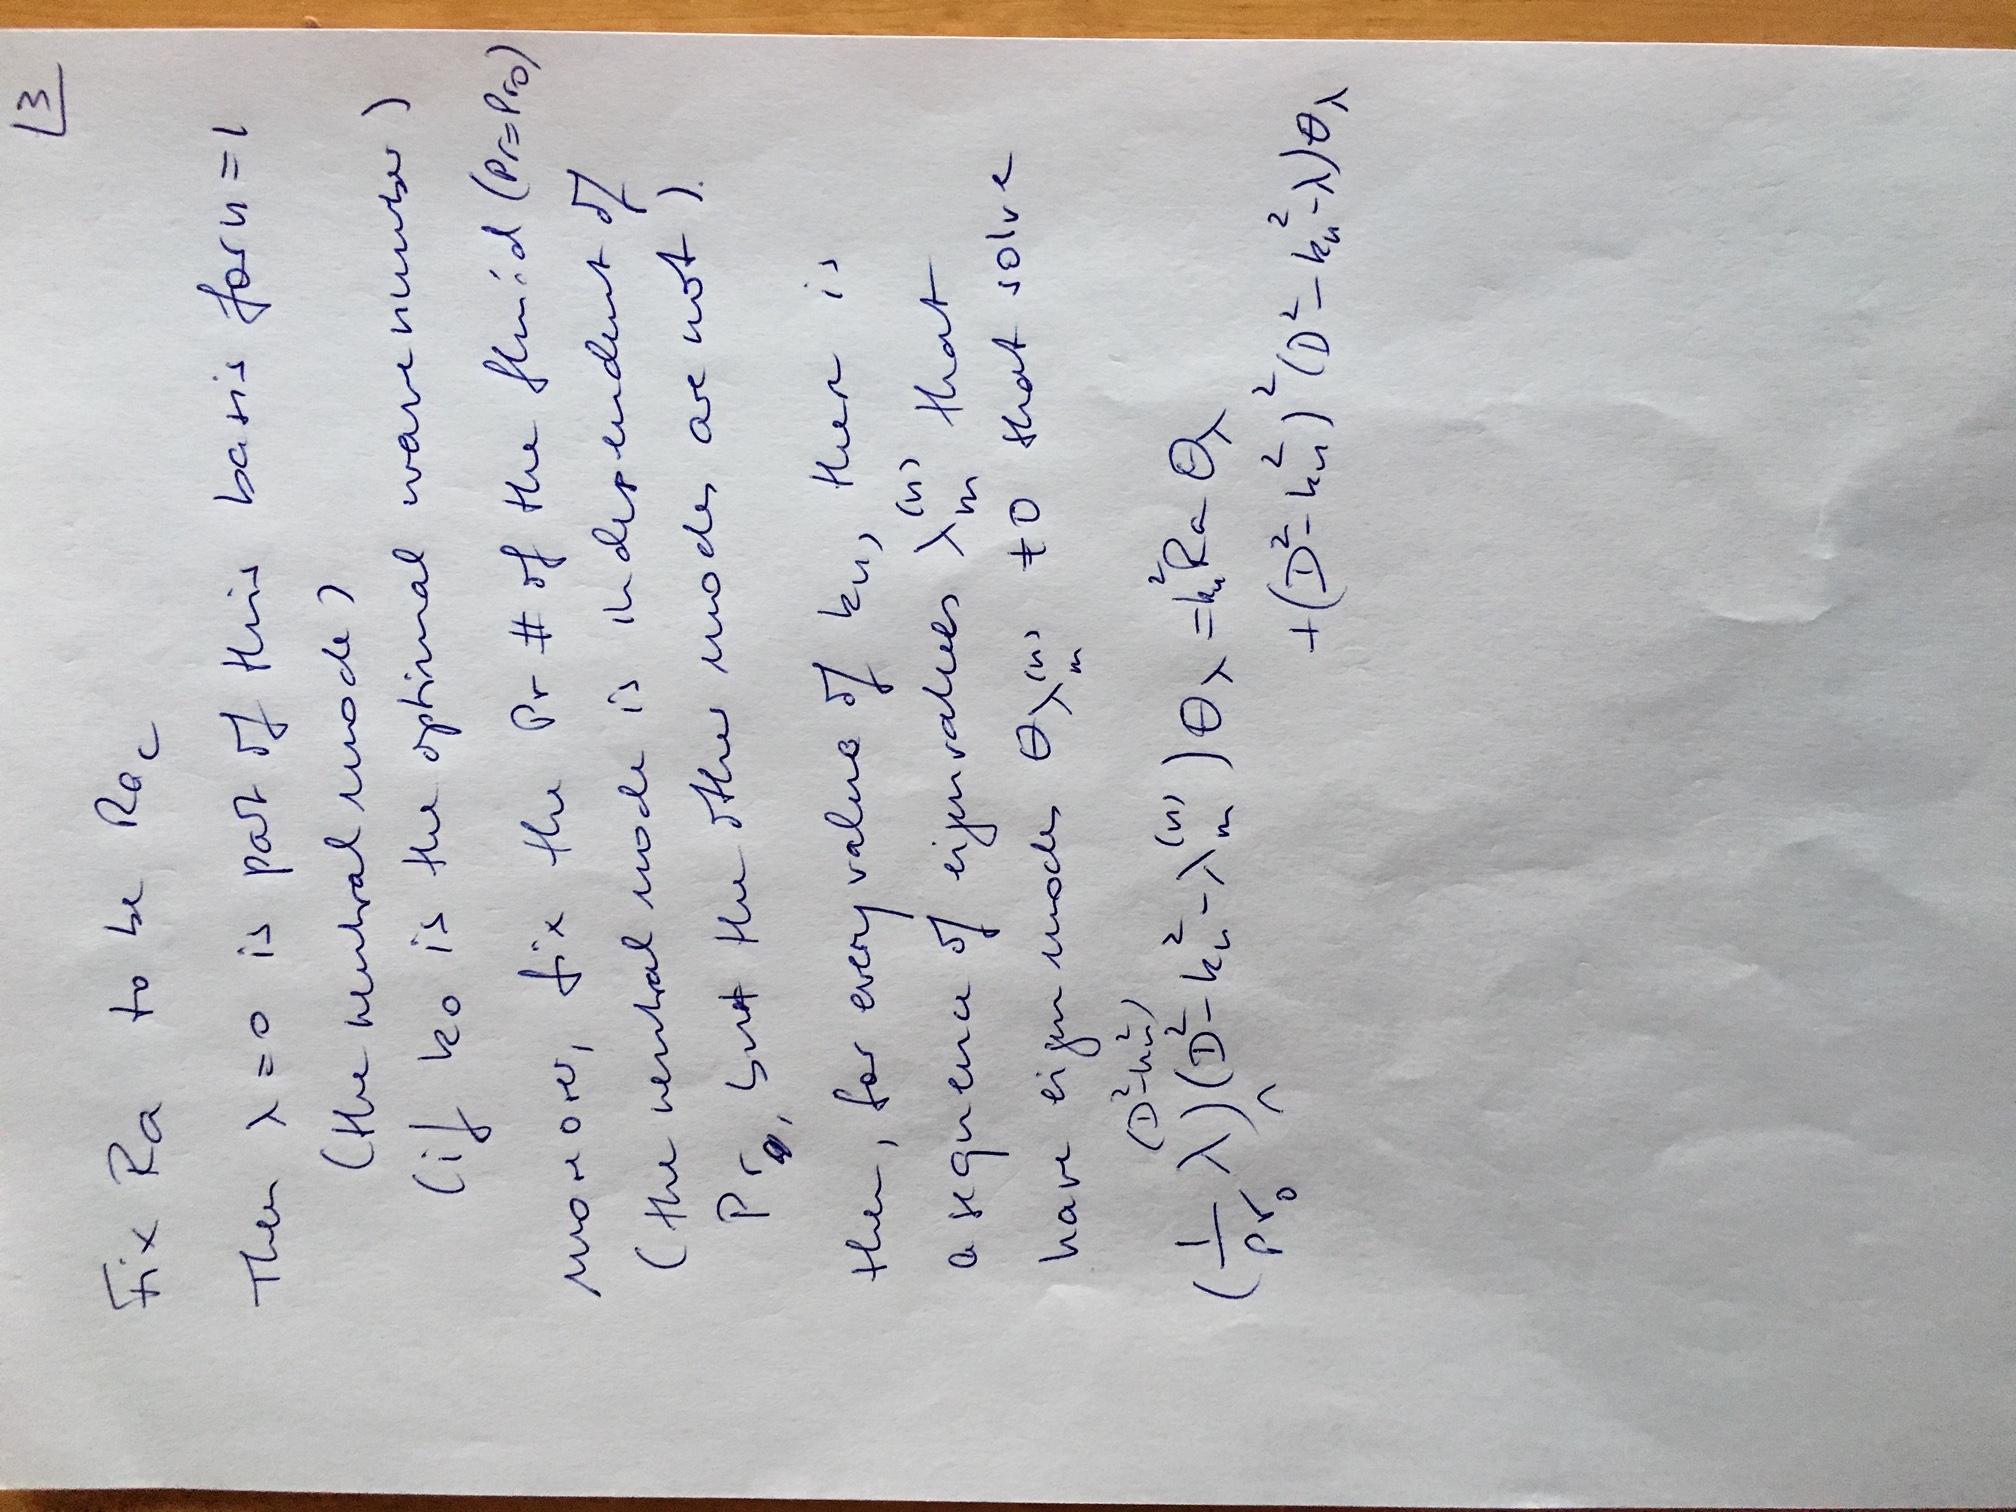 3
Fix Ra to be Ra_c
Then λ=0 is part of this basis for n=1
(the neutral mode)
(if k₀ is the optimal wavenumber)
moreover, fix the Pr # of the fluid (Pr=Pr₀)
(the neutral mode is independent of
Pr, but the other modes are not).
then, for every value of kₙ, there is
a sequence of eigenvalues λₘ⁽ⁿ⁾ that
have eigenmodes θ_λₘ⁽ⁿ⁾ ≠0 that solve
(D²-kₙ²)
(1/Pr₀ λ)^(D²-kₙ²-λₘ⁽ⁿ⁾)Θ_λ = kₙ²Ra Θ_λ
+(D²-kₙ²)²(D²-kₙ²-λ)Θ_λ